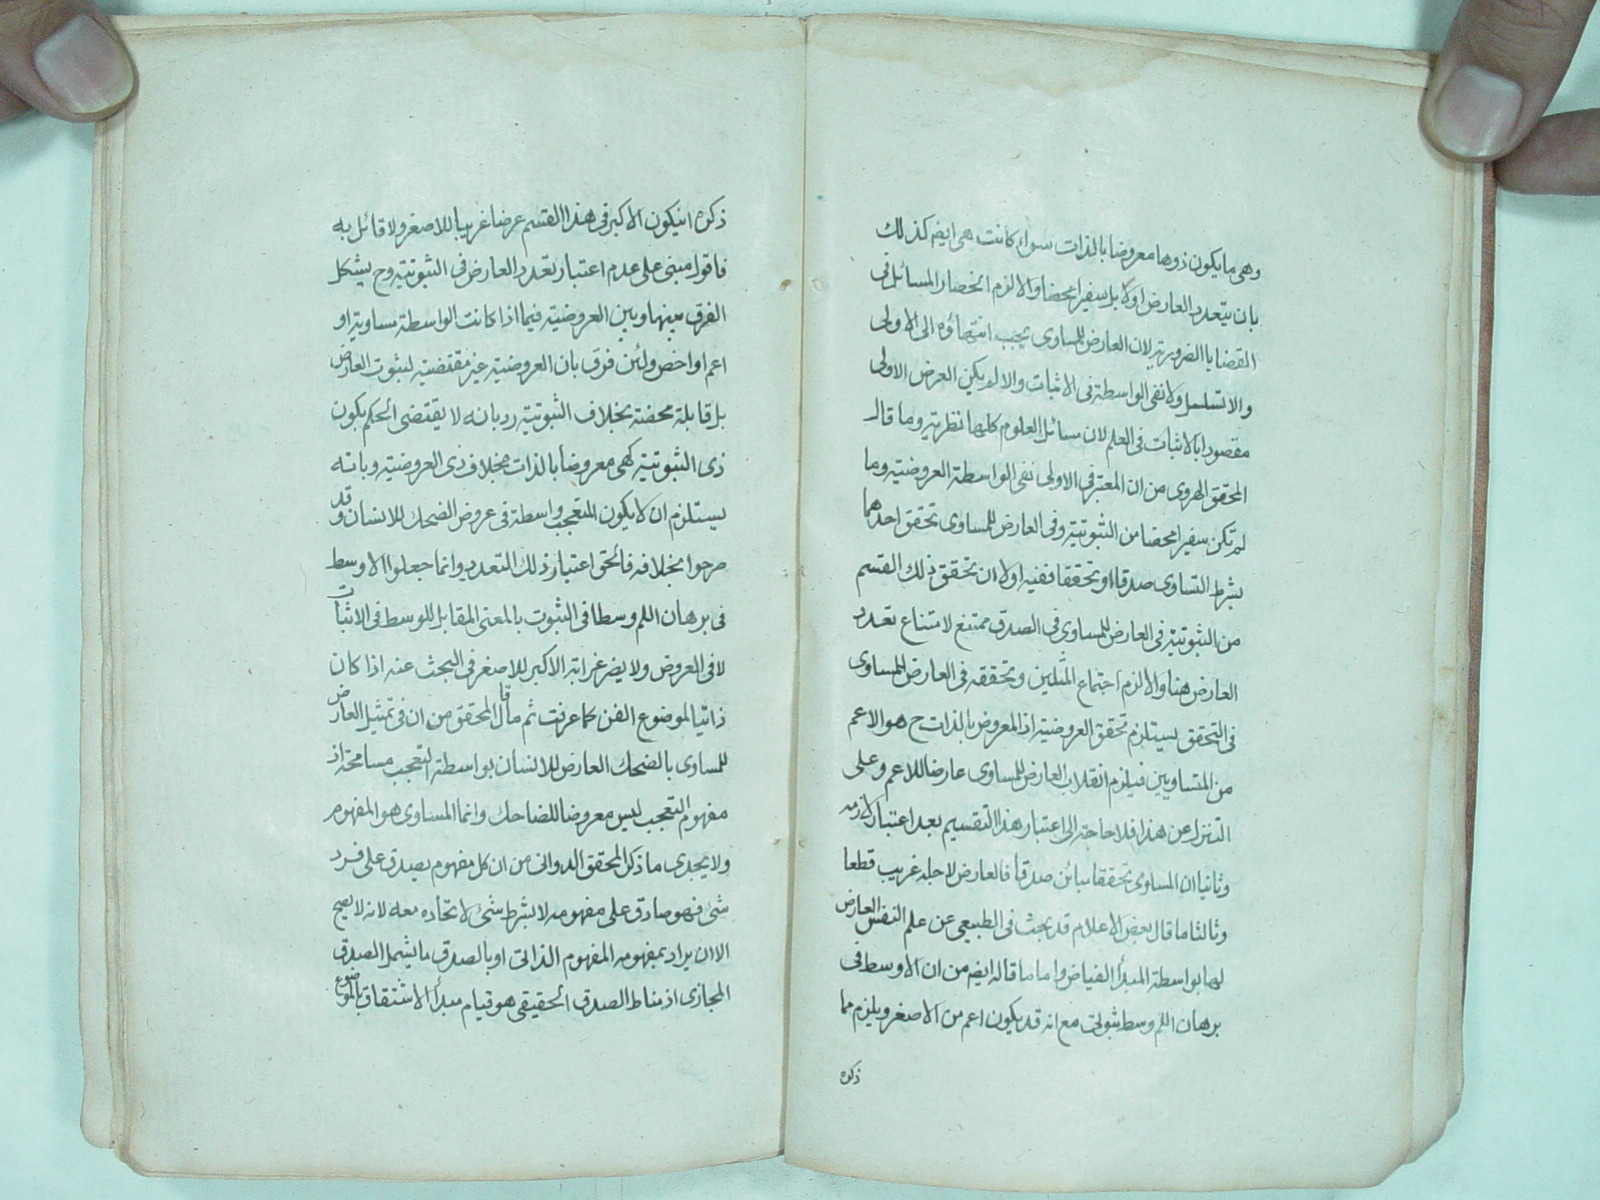 وهى ما يكون ذوها معروضا بالذات سواء كانت هى ايضه كذلك
بان يتعدد العارض اولا بل سفيرا محضا والا لزم انحصار المسائل فى
القضايا الضرورية لان العارض للمساوى يجب انتهاؤه الى الاولى
والا تسلسل ولا نفى الواسطة فى الاثبات والا لم يكن العرض الاولى
مقصودا بالاثبات فى العلم لان مسائل العلوم كلها نظرية وما قال
المحقق الهروى من ان المعتبر فى الاولى نفى الواسطة العروضية وما
لم تكن سفيرا محضا من الثبوتية وفى العارض للمساوى تحقق احدهما
بشرط التساوى صدقا او تحققا ففيه اولا ان تحقق ذلك القسم
من الثبوتية فى العارض للمساوى فى الصدق ممتنع لامتناع تعدد
العارض هنا والا لزم اجتماع المثلين وتحققه فى العارض للمساوى
فى التحقق يستلزم تحقق العروضية اذ المعروض بالذات ح هو الاعم
من المتساويين فيلزم انقلاب العارض للمساوى عارضا للاعم وعلى
التنزل عن هذا فلا حاجة الى اعتبار هذا التقسيم بعد اعتبار لازمه
وثانيا ان المساوى تحققا مبائن صدقا فالعارض لاجله غريب قطعا
وثالثا ما قال بعض الاعلام قد يبحث فى الطبيعى عن علم النفس العارض
لها بواسطة المبدأ الفياض واما ما قاله ايضه من ان الاوسط فى
برهان اللم وسط ثبوتى مع انه قد يكون اعم من الاصغر ويلزم مما
ذكره
ذكره ان يكون الاكبر فى هذا القسم عرضا غريبا للاصغر ولا قائل به
فاقول مبنى على عدم اعتبار تعدد العارض فى الثبوتية وح يشكل
الفرق بينها وبين العروضية فيما اذا كانت الواسطة مساوية او
اعم او اخص ولئن فرق بان العروضية غير مقتضية لثبوت العارض
بل قابلة محضة بخلاف الثبوتية رد بانه لا يقتضى الحكم بكون
ذى الثبوتية كهى معروضا بالذات بخلاف ذى العروضية وبانه
يستلزم ان لا يكون التعجب واسطة فى عروض الضحك للانسان وقد
صرحوا بخلافه فالحق اعتبار ذلك التعدد وانما جعلوا الاوسط
فى برهان اللم وسطا فى الثبوت بالمعنى المقابل للوسط فى الاثبات
لا فى العروض ولا يضر غرابة الاكبر للاصغر فى البحث عنه اذا كان
ذاتيا لموضوع الفن كما عرفت ثم ما قال المحقق من ان فى تمثيل العارض
للمساوى بالضحك العارض للانسان بواسطة التعجب مسامحة اذ
مفهوم التعجب ليس معروضا للضاحك وانما المساوى هو المفهوم
ولا يجدى ما ذكر المحقق الدوانى من ان كل مفهوم يصدق على فرد
شئ فهو صادق على مفهومه لا بشرط شئ لاتحاده معه لانه لا يصح
الا ان يراد بمفهومه المفهوم الذاتى او بالصدق ما يشمل الصدق
المجازى اذ مناط الصدق الحقيقى هو قيام مبدأ الاشتقاق بالموضوع